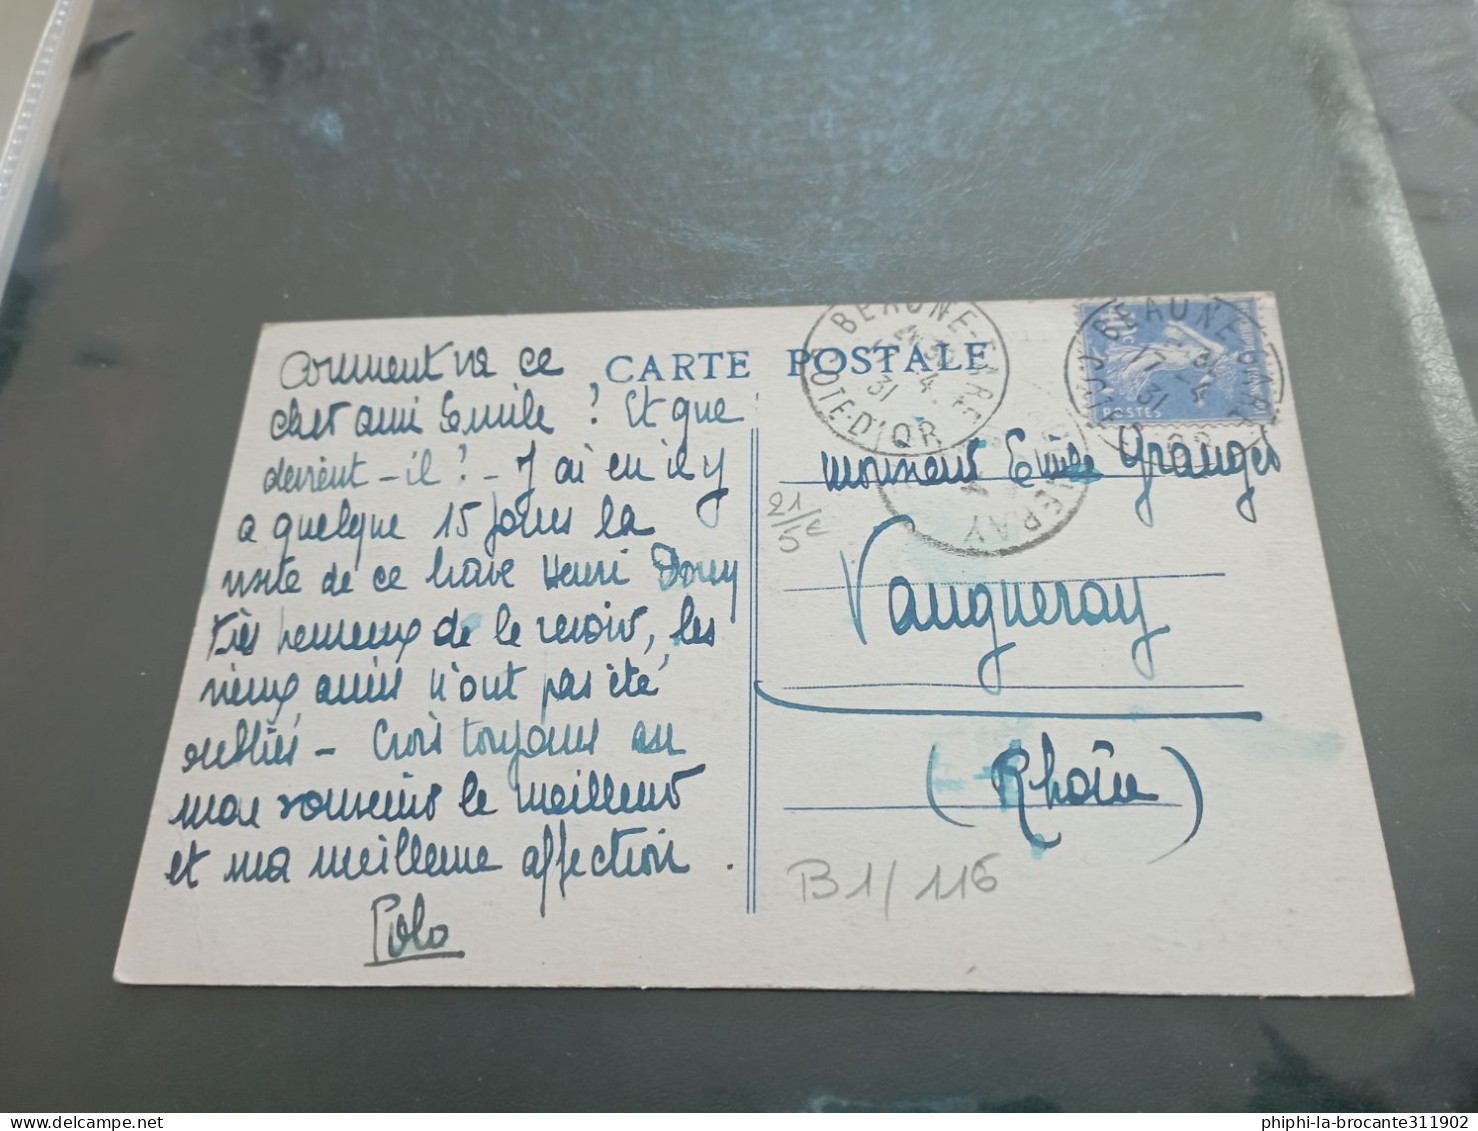 Comment va ce
cher ami Emile ? Et que
devient-il ? - J'ai eu il y
a quelque 15 jours la
visite de ce brave Henri Dorey
très heureux de le revoir, les
vieux amis n'ont pas été
oubliés - Crois toujours au
mon souvenir le meilleur
et ma meilleure affection.
Polo
CARTE POSTALE
BEAUNE-GARE
17 - 4
31
COTE-D'OR
BEAUNE GARE
17 - 4
31
POSTES
Monsieur Emile Granges
Vaugneray
(Rhône)
21/5€
B1/116
phiphi-la-brocante311902